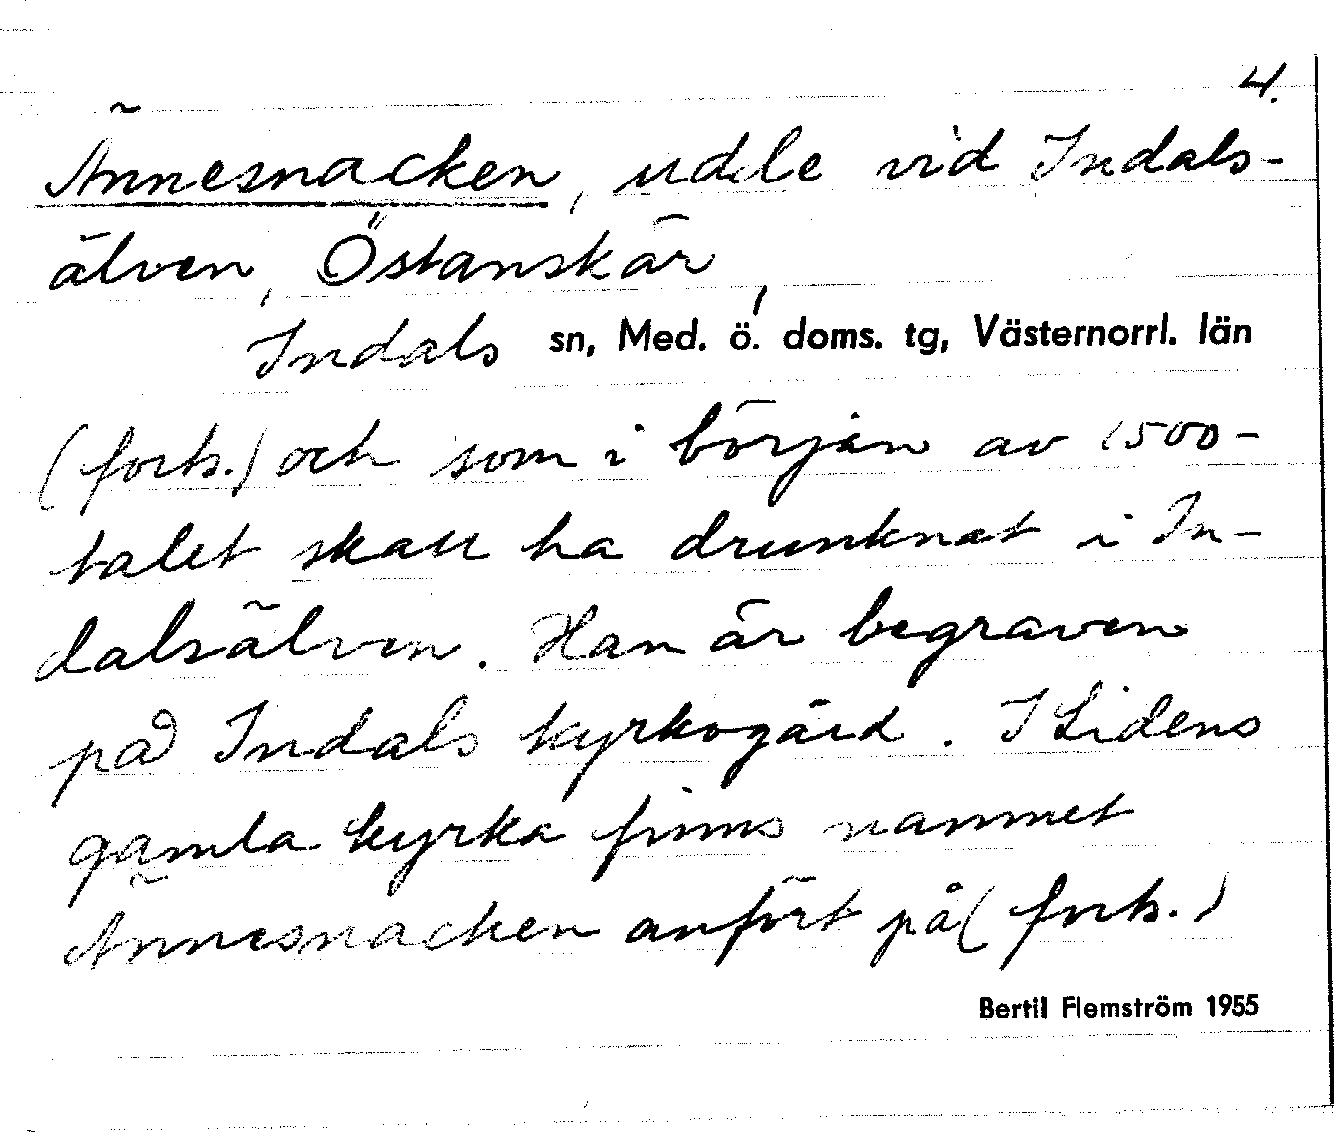 4.
Ännesnacken, udde vid Indals-
älven, Östanskär,
Indals sn, Med. ö. doms. tg, Västernorrl. län
(forts.) och som i början av 1500-
talet skall ha drunknat i In-
dalsälven. Han är begraven
på Indals kyrkogård. I Lidens
gamla kyrka finns namnet
Ännesnacken anfört på (forts.)
Bertil Flemström 1955